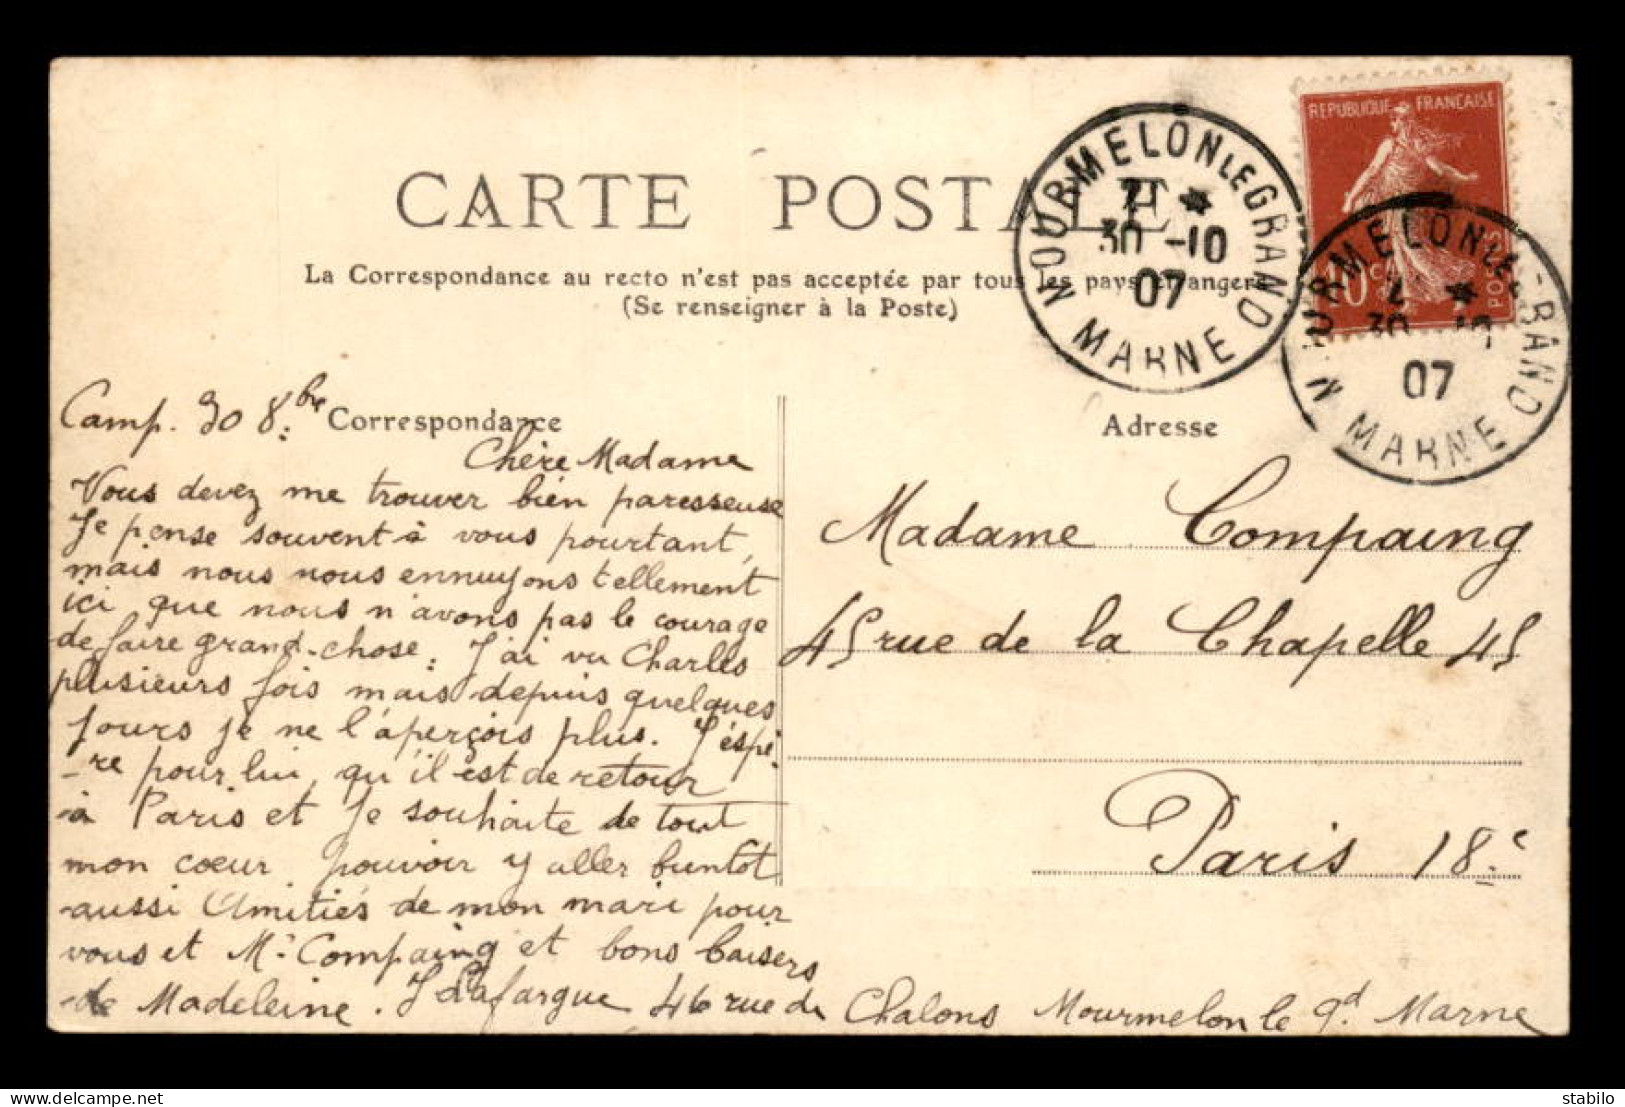 CARTE POSTALE
La Correspondance au recto n'est pas acceptée par tous les pays étrangers
(Se renseigner à la Poste)
REPUBLIQUE FRANÇAISE
POSTES
10c
MOURMELON LE GRAND
7 *
30 -10
07
MARNE
MOURMELON LE GRAND
7 *
30 -10
07
MARNE
Correspondance
Adresse
Camp. 30 8:bre
Chère Madame
Vous devez me trouver bien paresseuse
Je pense souvent à vous pourtant,
mais nous nous ennuyons tellement
ici que nous n'avons pas le courage
de faire grand-chose. J'ai vu Charles
plusieurs fois mais depuis quelques
jours je ne l'aperçois plus. J'espè-
-re pour lui, qu'il est de retour
à Paris et je souhaite de tout
mon coeur pouvoir y aller bientôt
aussi Amitiés de mon mari pour
vous et Mr Compaing et bons baisers
de Madeleine. J Lafargue 46 rue de Chalons Mourmelon le gd. Marne
Madame Compaing
45 rue de la Chapelle 45
Paris 18e
delcampe.net
stabilo